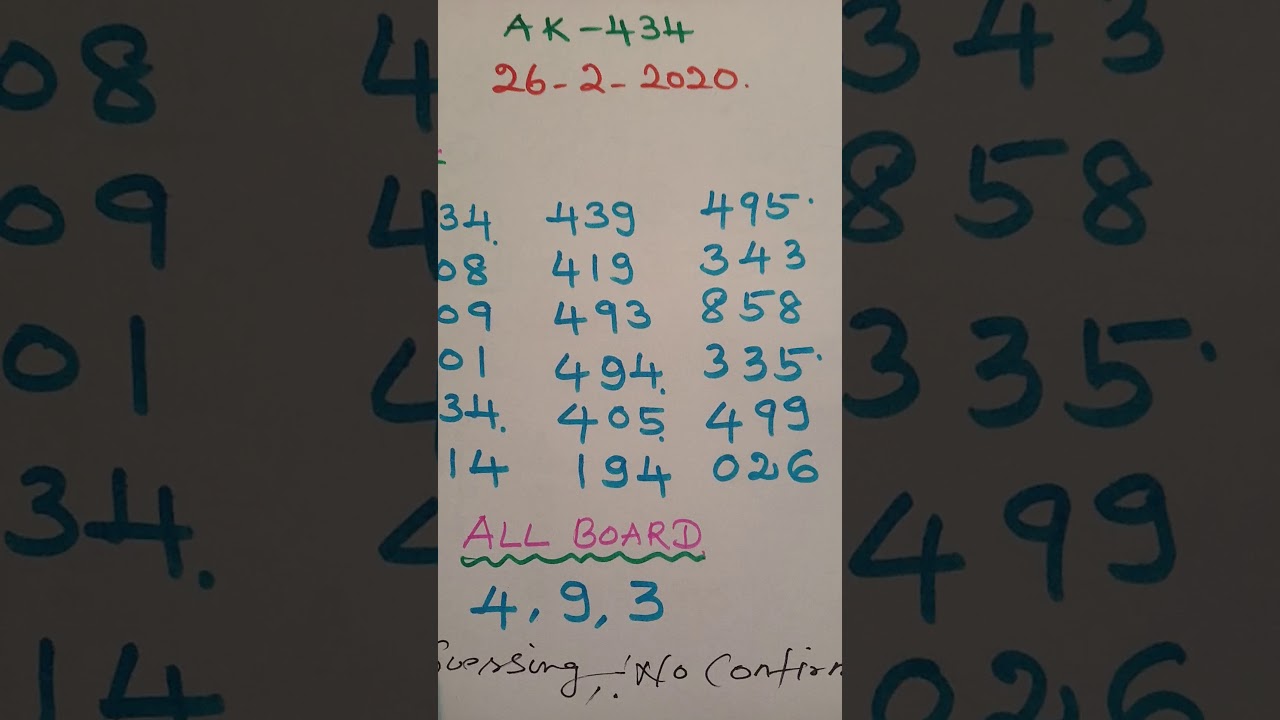 AK-434
26-2-2020.
34. 439 495.
08 419 343
09 493 858
01 494. 335.
34. 405. 499
14 194 026
ALL BOARD
4, 9, 3
Guessing, No Confirm